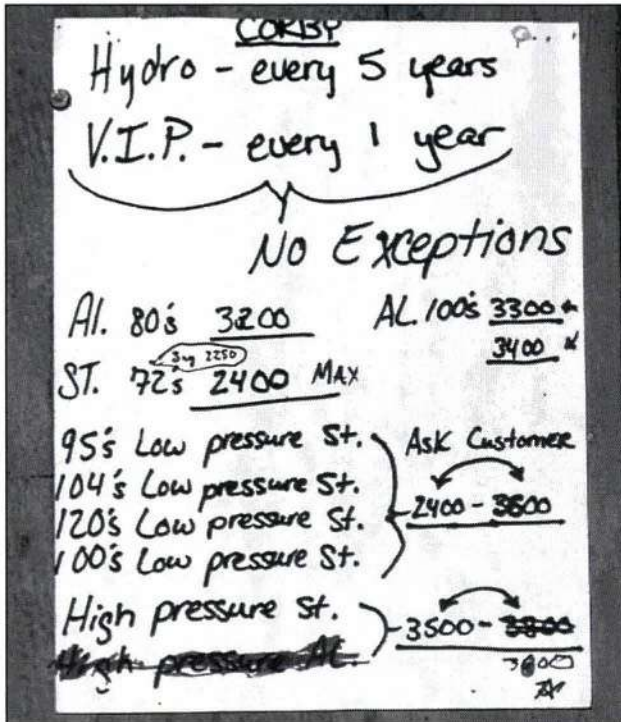 CORBY
Hydro - every 5 years
V.I.P. - every 1 year
No Exceptions
Al. 80's 3200
AL. 100's 3300
3400
2250
ST. 72's 2400 MAX
95's Low pressure St.
104's Low pressure St.
120's Low pressure St.
100's Low pressure St.
Ask Customer
2400 - 3600
High pressure St.
High pressure AL.
3500 -
3800